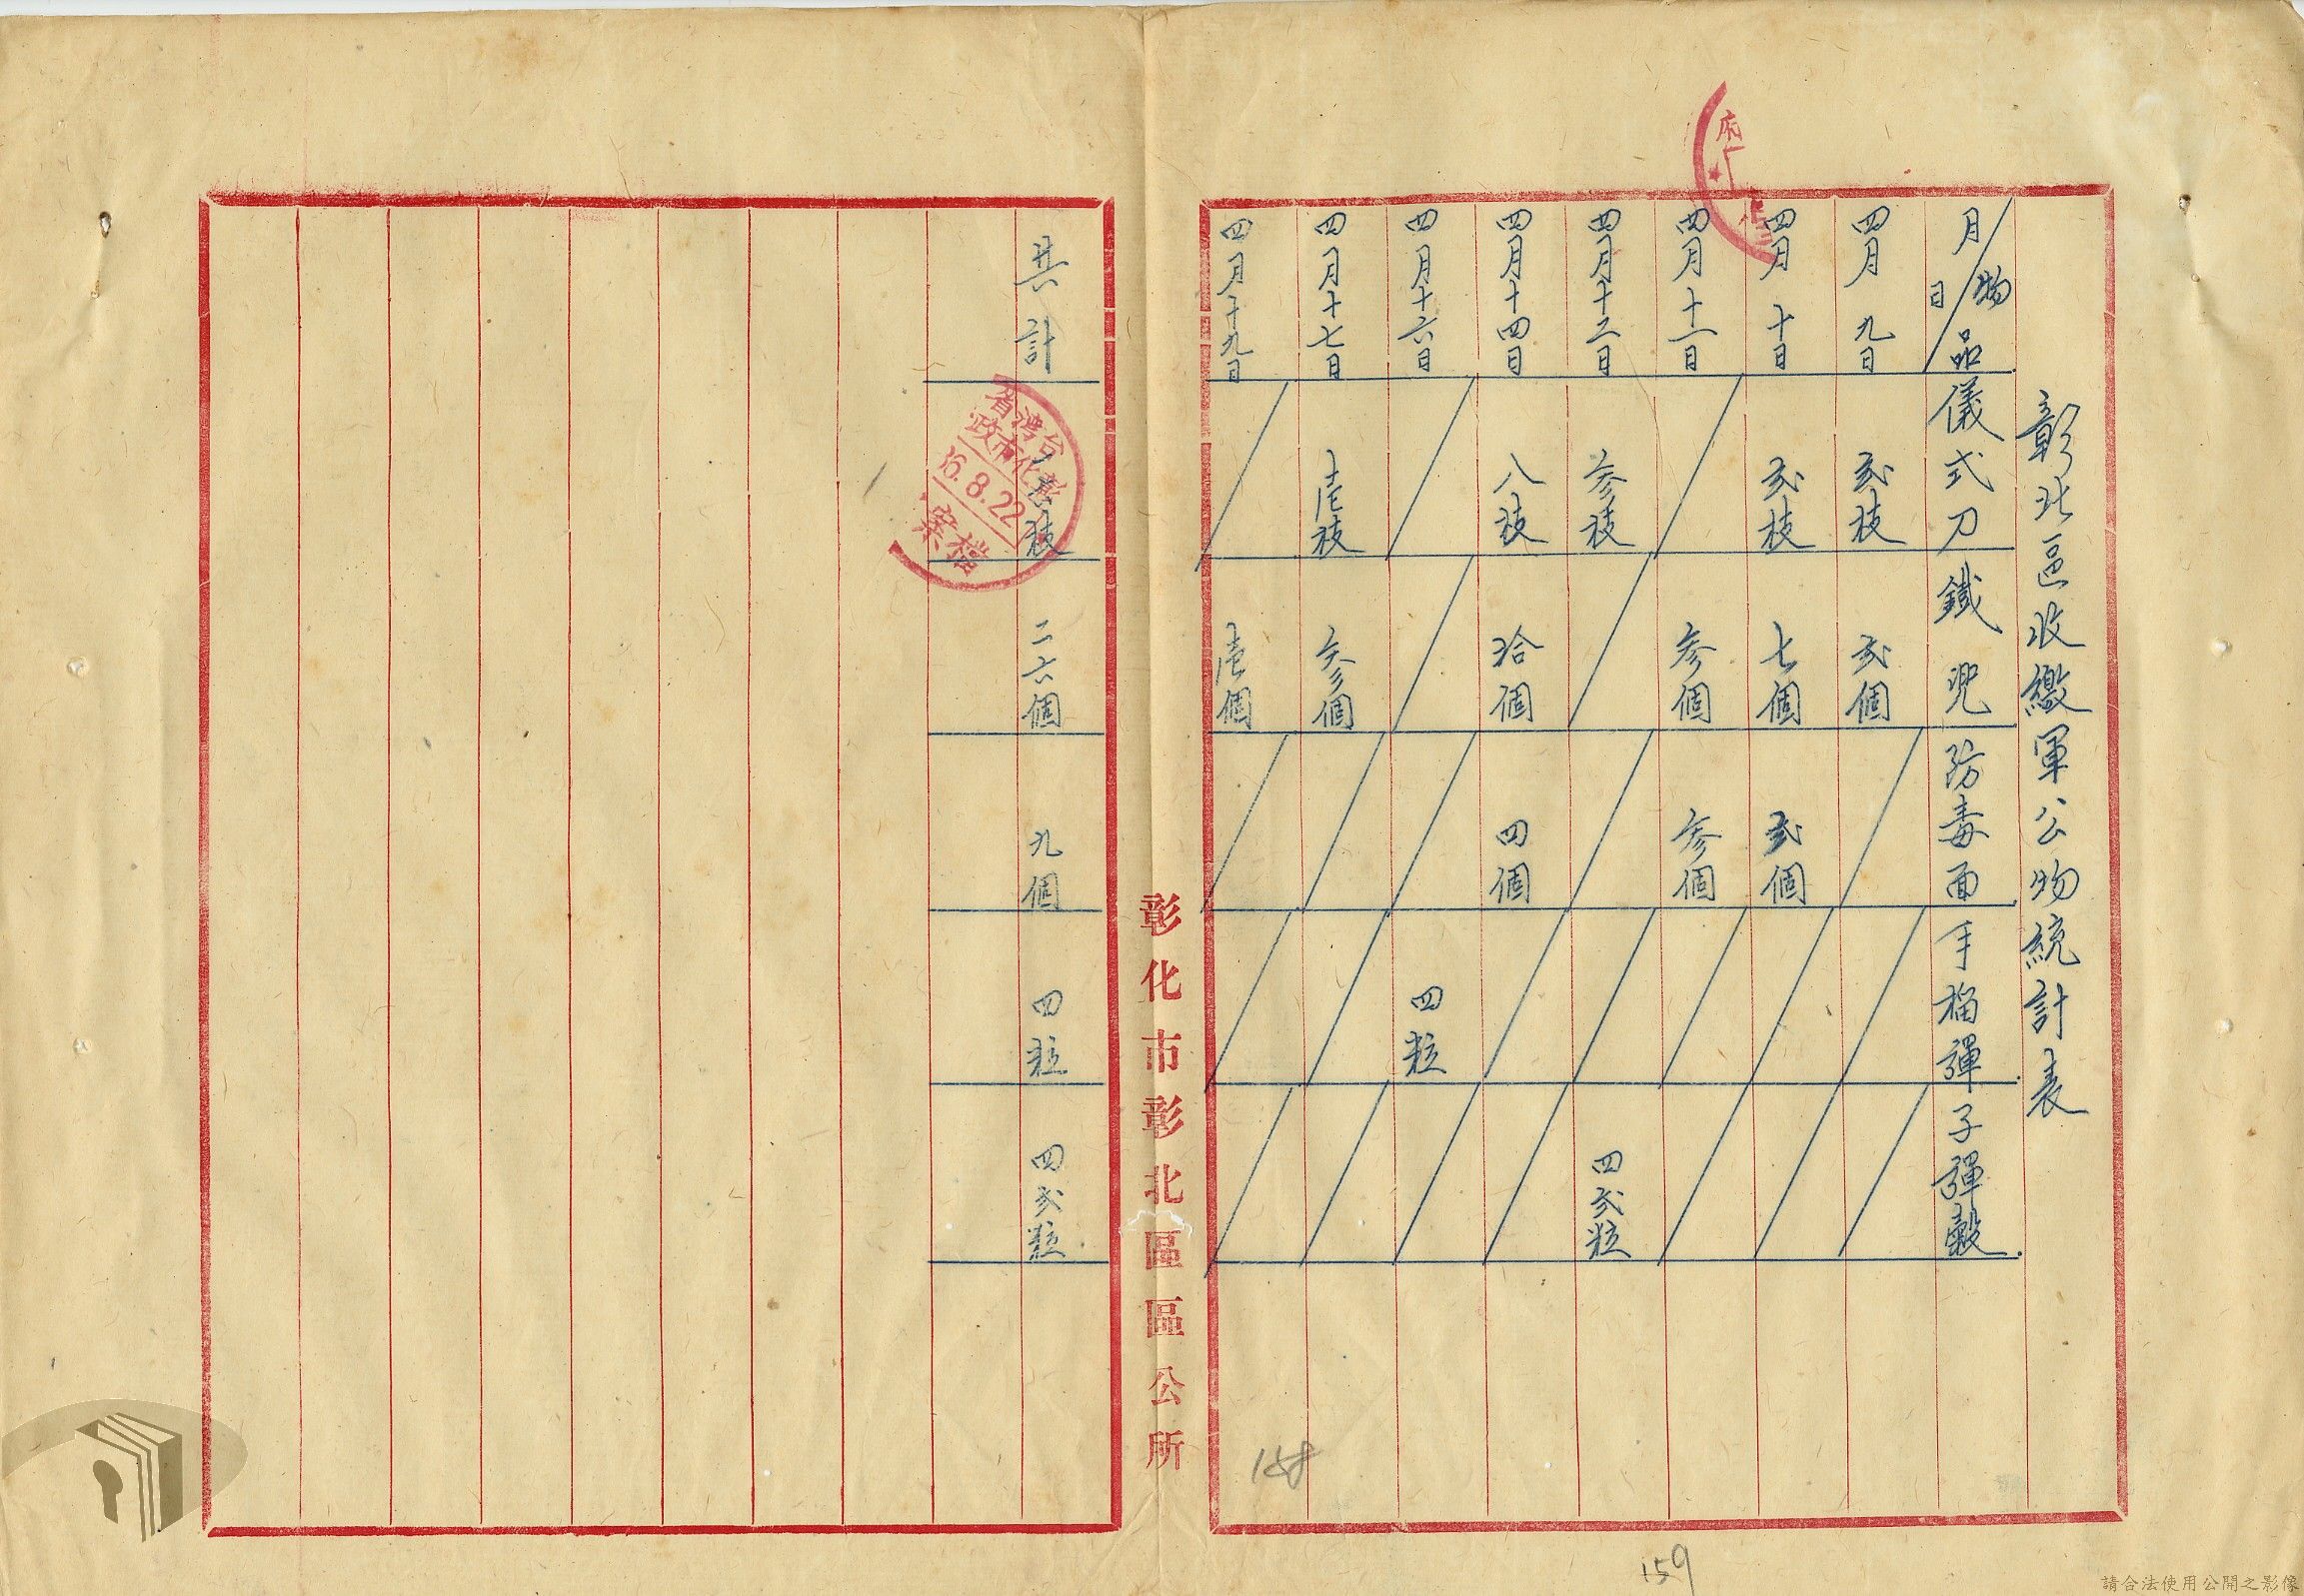 彰北區收繳軍公物統計表
月日/物品 儀式刀 鐵兜 防毒面 手榴彈 子彈殼
四月九日 弍枝 弍個
四月十日 弍枝 七個 弍個
四月十一日 参個 参個
四月十二日 参枝 四弍粒
四月十四日 八枝 拾個 四個
四月十六日 四粒
四月十七日 壱枝 参個
四月十九日 壱個
彰化市彰北區區公所
共計 枝 二六個 九個 四粒 四弍粒
台灣省
彰化市政
36.8.22
檔案
158
159
請合法使用公開之影像